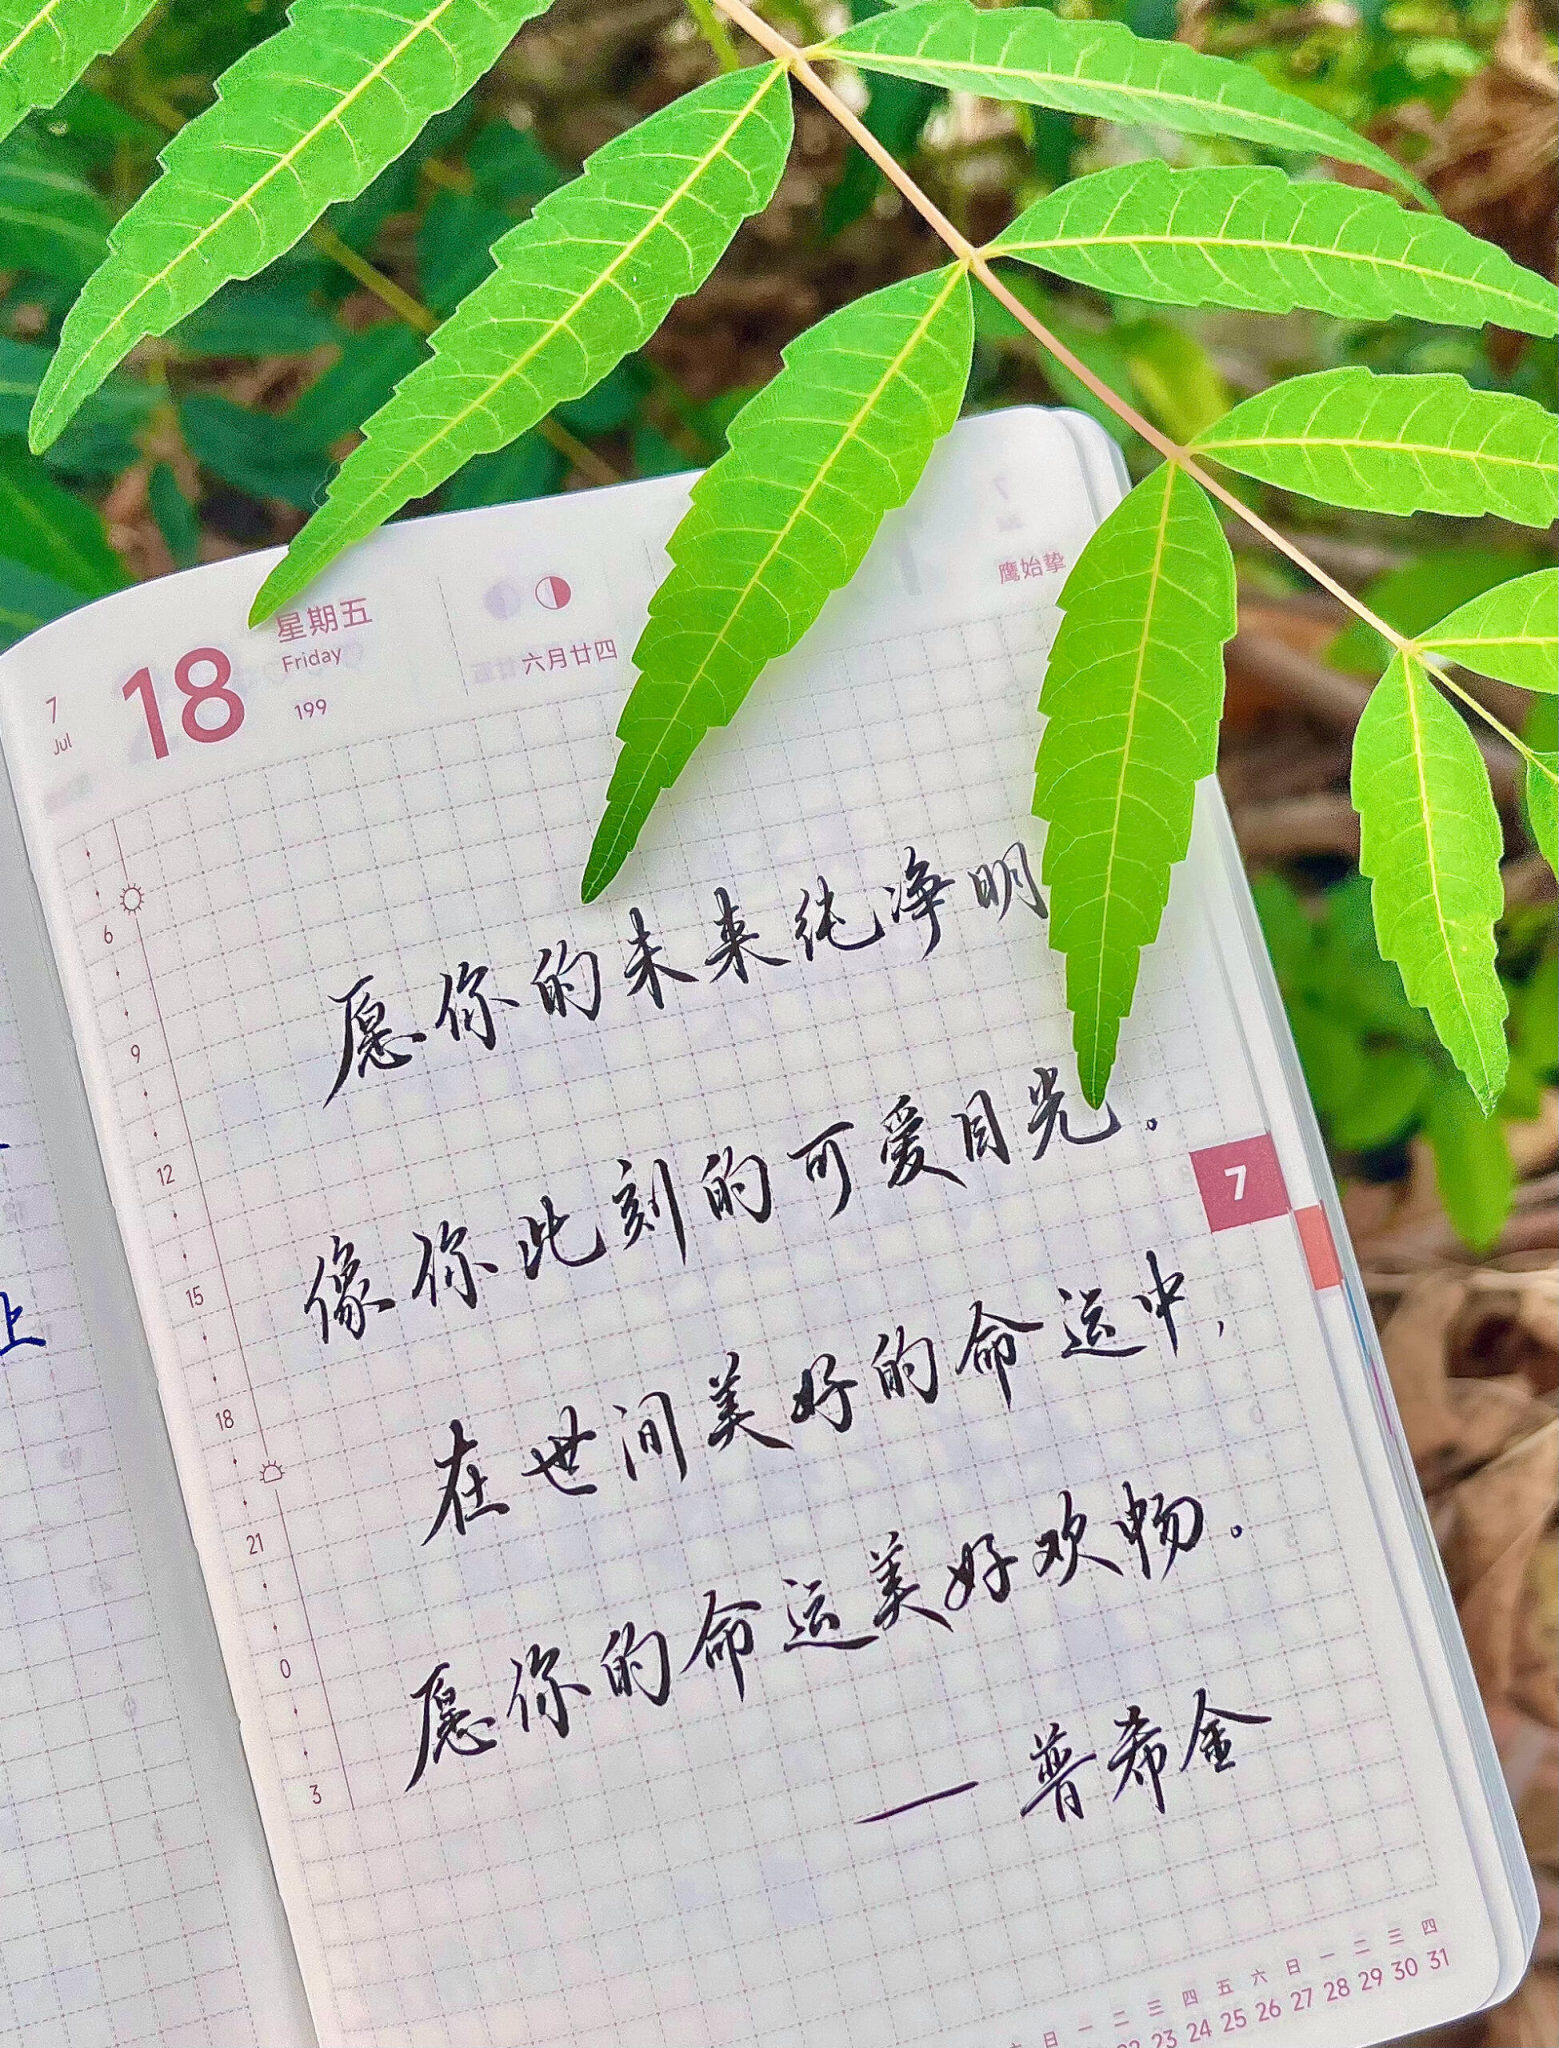 鹰始挚
星期五
Friday
六月廿四
7
Jul
18
199
6
9
12
15
18
21
0
3
愿你的未来纯净明
像你此刻的可爱目光。
在世间美好的命运中,
愿你的命运美好欢畅。
—普希金
7
上
日 一 二 三 四 五 六 日 一 二 三 四
23 24 25 26 27 28 29 30 31